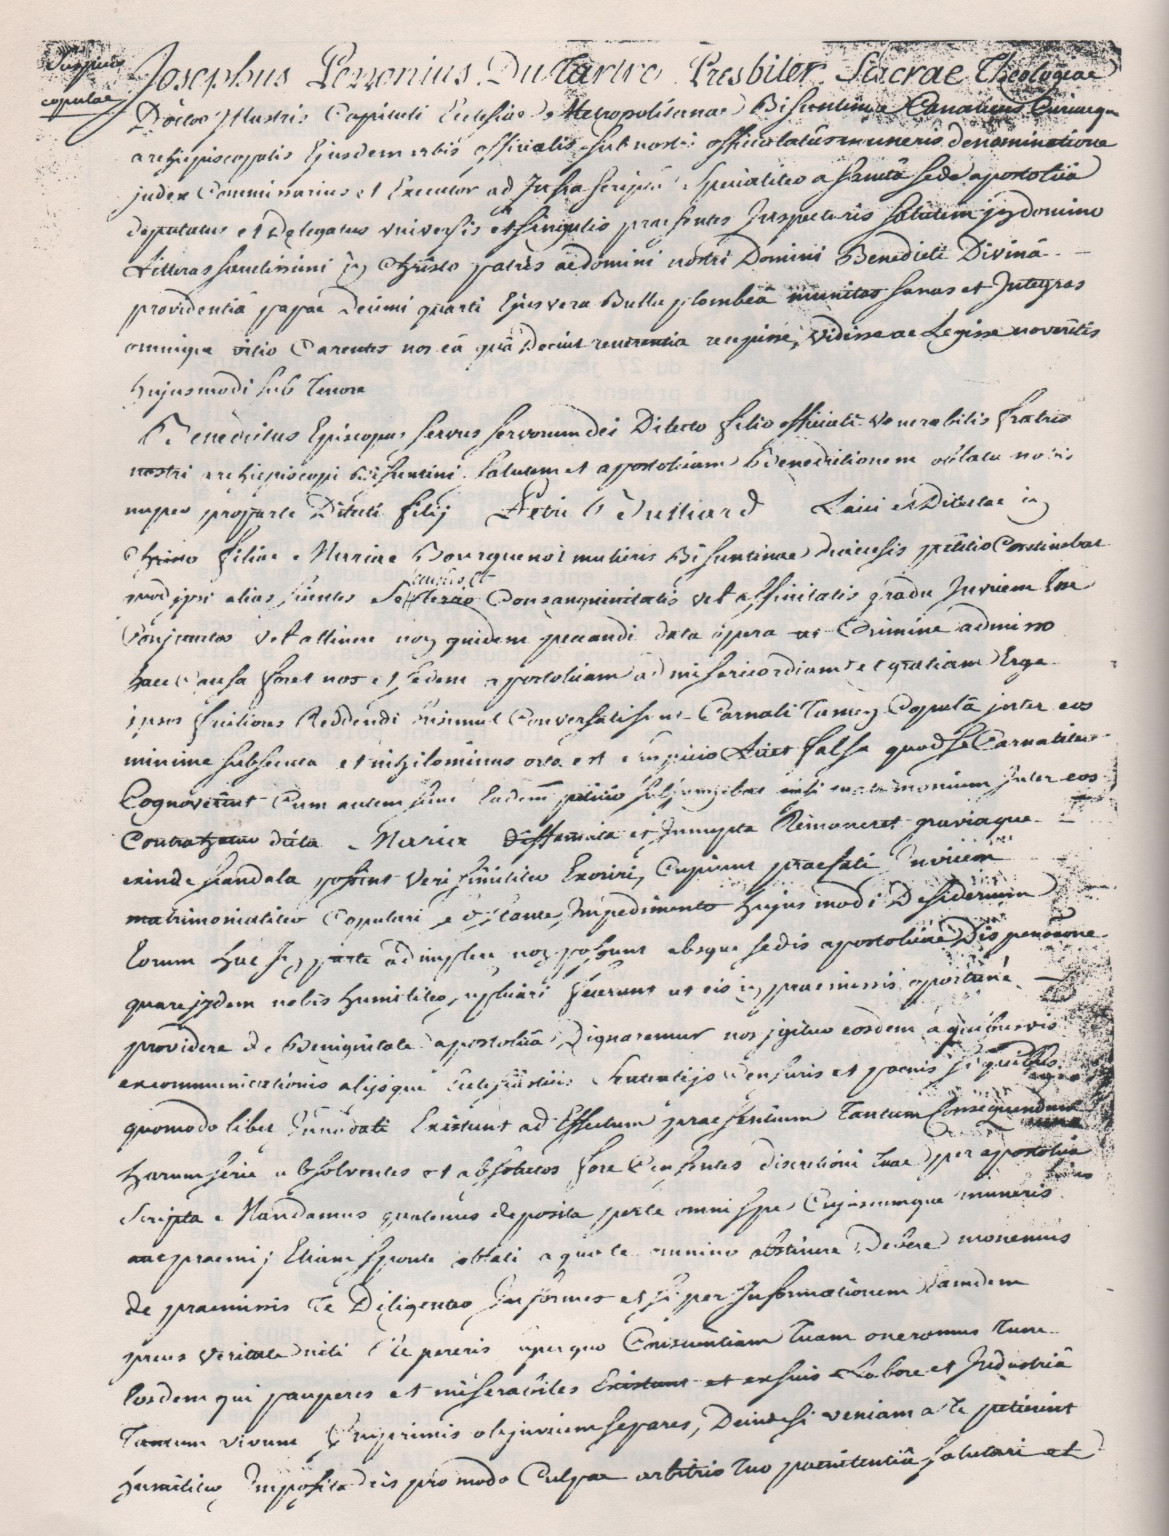 Suspicio
copulae
Josephus Dutartre Presbiter Sacrae Theologiae
Doctor Illustris Capituli Ecclesiae Metropolitanae Bisuntinae Canonicus Curiaeque
archiepiscopalis Ejusdem urbis officialis sub nostri officialatûs muneris denominatione
judex Commissarius et Executor ad Infra scripta specialiter a sanctâ sede apostolicâ
deputatus et Delegatus universis et singulis praesentes Inspecturis salutem in domino
Litteras sanctissimi in Christo patris ac domini nostri Domini Benedicti Divinâ
providentiâ papae Decimi quarti Ejus vera Bulla plombeâ munitas sanas et Integras
omnique vitio Carentes nos eâ quâ Decuit reverentia recepisse, vidisse ac Legisse noveritis
hujusmodi sub Tenore
Benedictus Episcopus servus servorum dei Dilecto filio officiali Venerabilis fratris
nostri archiepiscopi Bisuntini salutem et apostolicam Benedictionem oblata nobis
nuper pro parte Dilecti filij Petri Laici et Dilectae in
Christo filiae Mariae Bourguenot mulieris Bisuntinae diocesis petitio Continebat
quod ipsi alias scientes Consanguinitatis vel affinitatis gradu Invicem fore
Conjunctos vel attinere non quidem peccandi data opera ut Crimine admisso
haec Causa foret nos et sedem apostolicam ad misericordiam et gratiam Erga
ipsos faciliores Reddendi simul Conversati sunt Carnali Tamen Copulâ inter eos
minime subsecuta et nihilominus orta est suspicio Licet falsa quod se Carnaliter
Cognoverint Cum autem sicut Eadem petitio subjungebat nisi matrimonium Inter eos
Contrahatur dicta Maria diffamata et Innupta Remaneret graviaque
exinde scandala possent verisimiliter Exoriri, Cupiunt praefati Invicem
matrimonialiter Copulari sed obstante Impedimento hujusmodi Desiderium
Eorum hac In parte adimplere non possunt absque sedis apostolicae Dispensatione
quare ijdem nobis humiliter supplicari fecerunt ut eis in praemissis opportunè
providere de Benignitate apostolicâ Dignaremur nos igitur eosdem a quibusvis
excommunicationis alijsque Ecclesiasticis sententijs Censuris et poenis si quibus
quomodo libet Innodati Existunt ad Effectum praesentium Tantum Consequendum
harum serie absolventes et absolutos fore Censentes discretioni tuae per apostolica
scripta Mandamus quatenus deposita per te omni spe Cujuscumque muneris
aut praemij Etiam sponte oblati a quo te omnino abstinere Debere monemus
de praemissis te Diligenter Informes et si per Informationem eamdem
preces veritate niti repereris super quo Conscientiam tuam oneramus tunc
Eosdem qui pauperes et miserabiles Existunt et ex suis Labore et Industriâ
Tantum vivunt ab invicem separes, Deinde si veniam a te petierint
humiliter Impositâ eis pro modo Culpae arbitrio tuo poenitentiâ salutari et